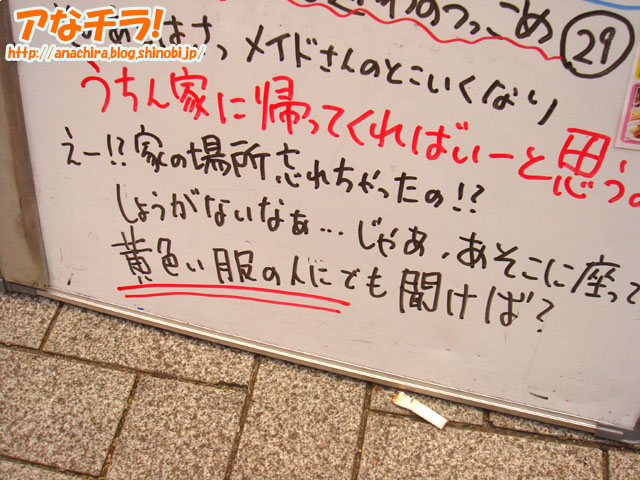 アなチラ!
http://anachira.blog.shinobi.jp/
のつっこめ 29
メイドさんのとこいくなり
うちん家に帰ってくればいーと思う
えー!?家の場所忘れちゃったの!?
しょうがないなぁ…じゃあ、あそこに座って
黄色い服の人にでも聞けば?